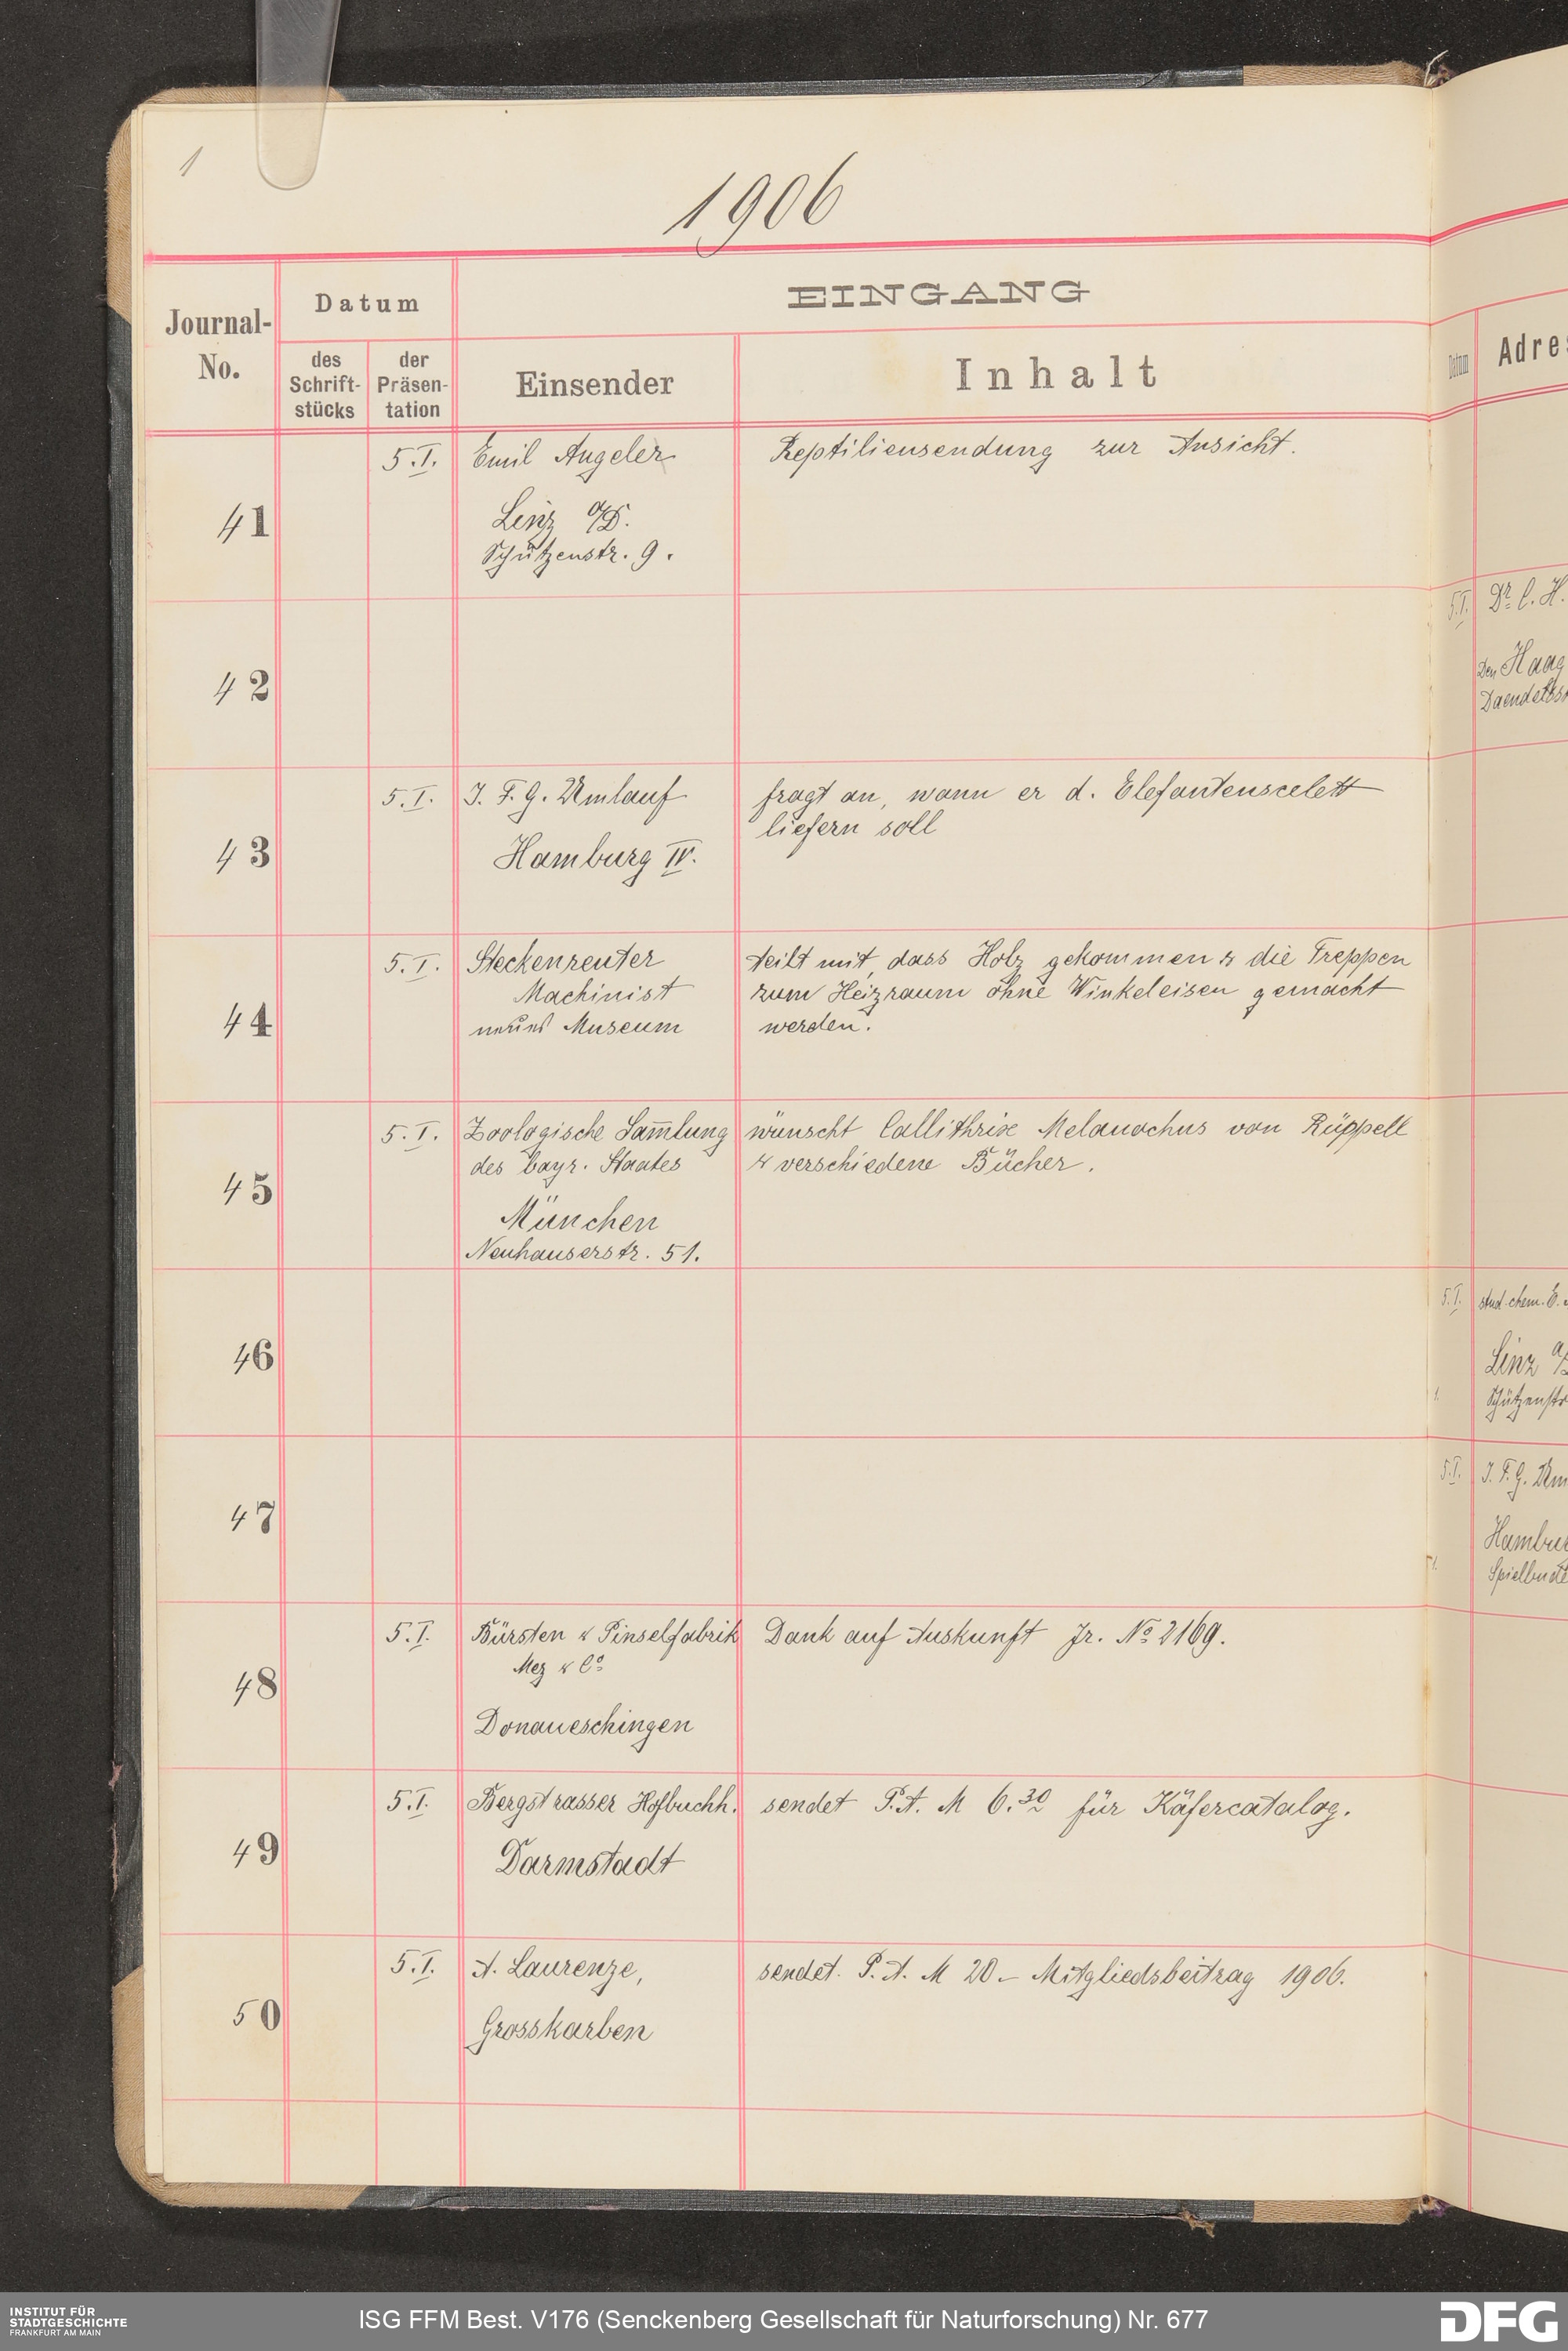 1
1906
Journal-
No.
Datum
des
Schrift-
stücks
der
Präsen-
tation
EINGANG
Einsender
Inhalt
Datum
41
5.I.
Emil Angeler
Linz a/D.
Schützenstr. 9.
Reptiliensendung zur Ansicht.
42
5.I.
Dr. C. H.
Den Haag
43
5.I.
J. F. G. Umlauf
Hamburg IV.
fragt an, wann er d. Elefantenscelett
liefern soll
44
5.I.
Steckenreuter
Machinist
neues Museum
teilt mit, dass Holz gekommen & die Treppen
zum Heizraum ohne Winkeleisen gemacht
werden.
45
5.I.
Zoologische Sammlung
des bayr. Staates
München
Neuhauserstr. 51.
wünscht Callithrix Melanochus von Rüppell
& verschiedene Bücher.
46
5.I.
stud. chem. E.
Linz
47
5.I.
J. F. G.
48
5.I.
Bürsten & Pinselfabrik
Mez & Co
Donaueschingen
Dank auf Auskunft Jr. No 2169.
49
5.I.
Bergstrasser Hofbuchh.
Darmstadt
sendet P.A. M 6.30 für Käfercatalog.
50
5.I.
A. Laurenze,
Grosskarben
sendet. P.A. M 20.- Mitgliedsbeitrag 1906.
INSTITUT FÜR
STADTGESCHICHTE
FRANKFURT AM MAIN
ISG FFM Best. V176 (Senckenberg Gesellschaft für Naturforschung) Nr. 677
DFG